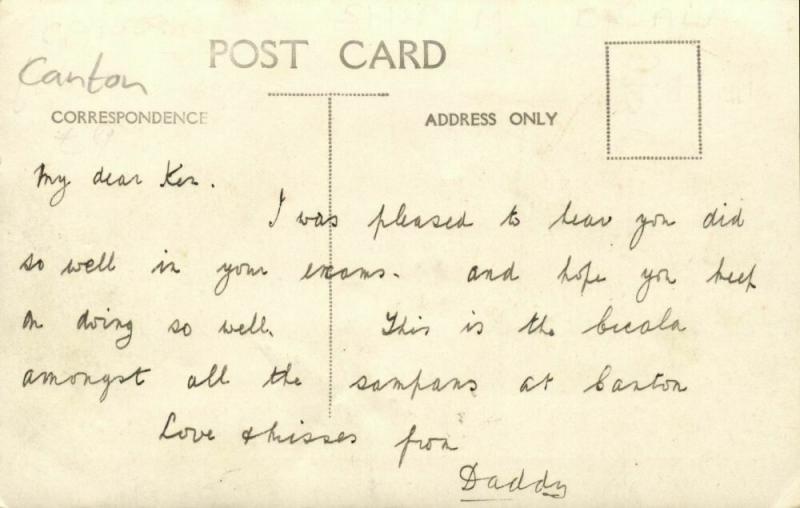 POST CARD
Canton
CORRESPONDENCE
ADDRESS ONLY
My dear Ken.
I was pleased to hear you did
so well in your exams. and hope you keep
on doing so well. This is the Cicala
amongst all the sampans at Canton
Love & kisses from
Daddy